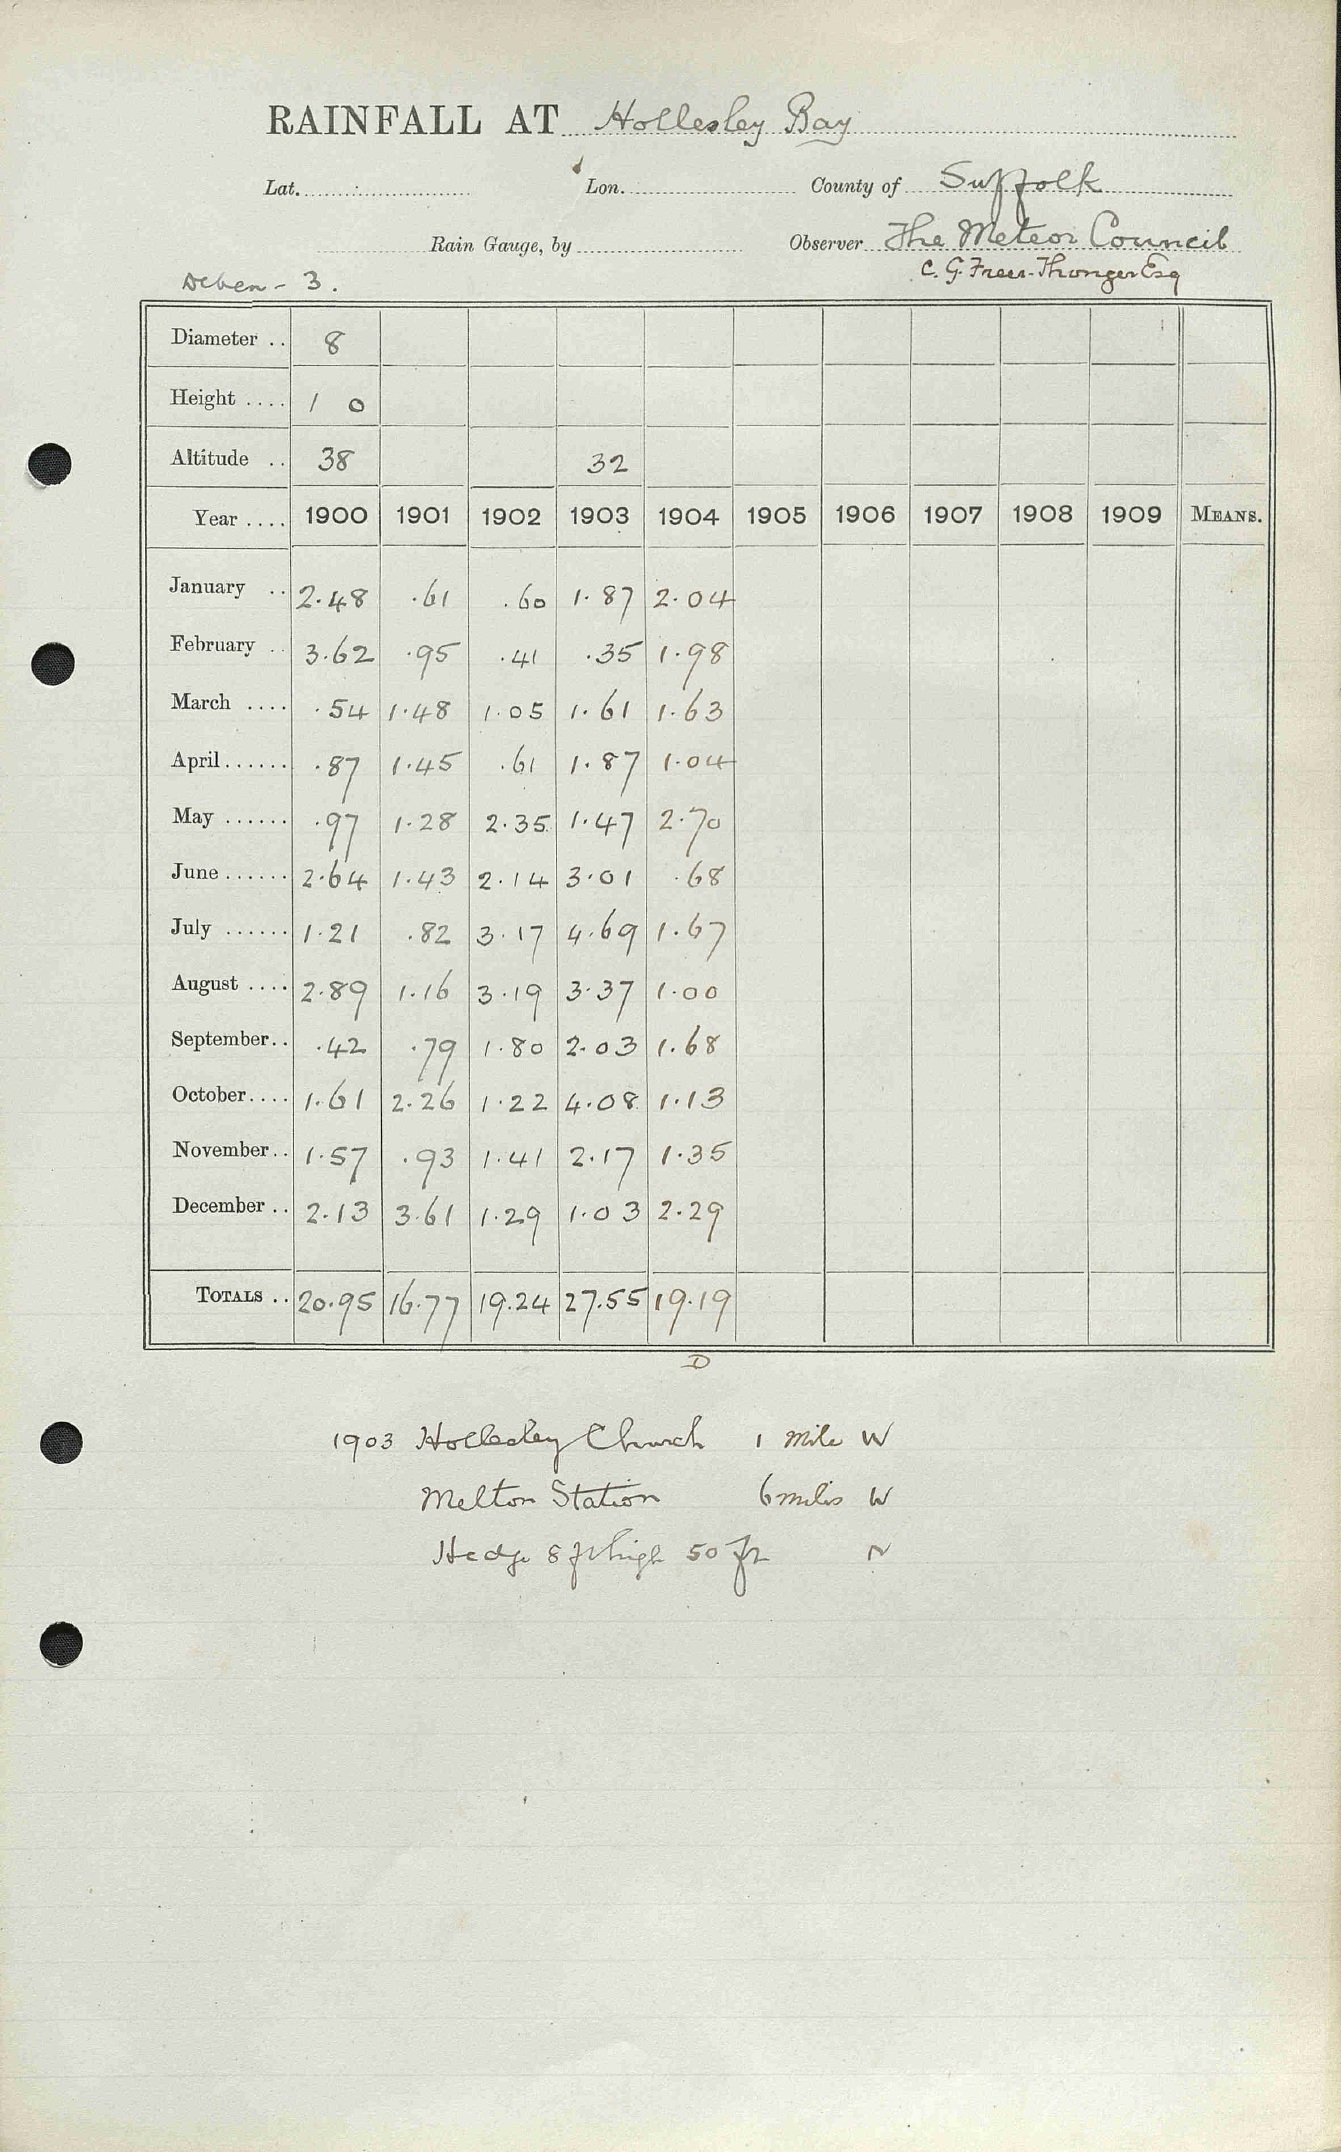 RAINFALL AT Hollesley Bay
Lat. Lon. County of Suffolk
Rain Gauge, by Observer The Meteor Council
C. G. Freer-Thonger Esq
Deben - 3.
Diameter .. 8
Height .... 1 0
Altitude .. 38 32
Year .... 1900 1901 1902 1903 1904 1905 1906 1907 1908 1909 MEANS.
January .. 2.48 .61 .60 1.87 2.04
February .. 3.62 .95 .41 .35 1.98
March .... .54 1.48 1.05 1.61 1.63
April ...... .87 1.45 .61 1.87 1.04
May ...... .97 1.28 2.35 1.47 2.70
June ...... 2.64 1.43 2.14 3.01 .68
July ...... 1.21 .82 3.17 4.69 1.67
August .... 2.89 1.16 3.19 3.37 1.00
September.. .42 .79 1.80 2.03 1.68
October.... 1.61 2.26 1.22 4.08 1.13
November.. 1.57 .93 1.41 2.17 1.35
December .. 2.13 3.61 1.29 1.03 2.29
TOTALS .. 20.95 16.77 19.24 27.55 19.19
D
1903 Hollesley Church 1 mile W
Melton Station 6 miles W
Hedge 8 ft high 50 ft N